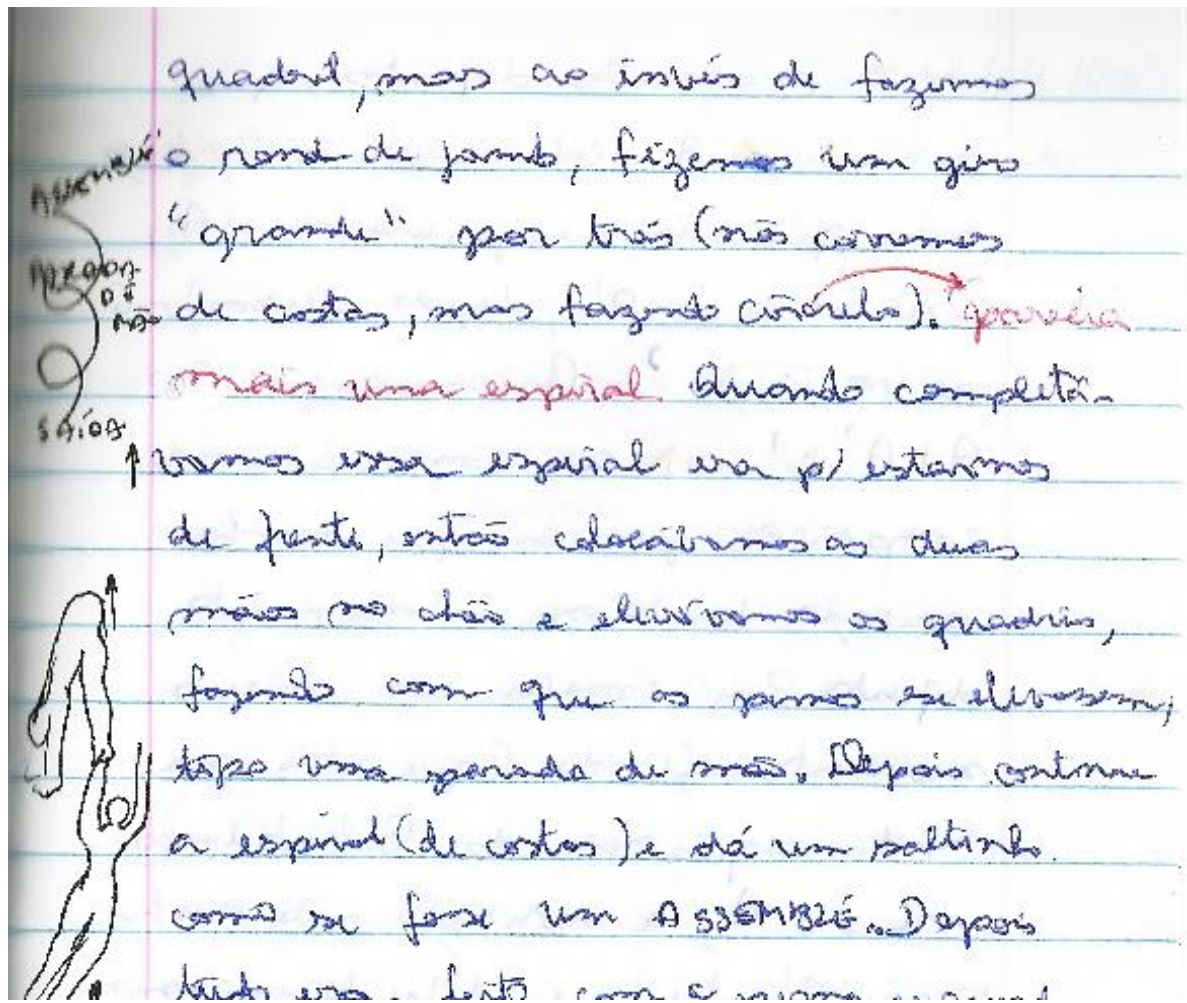 quadril, mas ao invés de fazermos
ASSEMBLÉ
o rond de jamb, fizemos um giro
"grande" por trás (não corremos
PARADA
DE
MÃO
de costas, mas fazendo círculo). "parecia
mais uma espiral" Quando completá-
SAÍDA
vamos essa espiral era p/ estarmos
de frente, então colocávamos as duas
mãos no chão e elevávamos os quadris,
fazendo com que as pernas se elevassem,
tipo uma parada de mão. Depois continue
a espiral (de costas) e dá um saltinho
como se fosse um ASSEMBLÉ. Depois
tudo era feito com a mesma